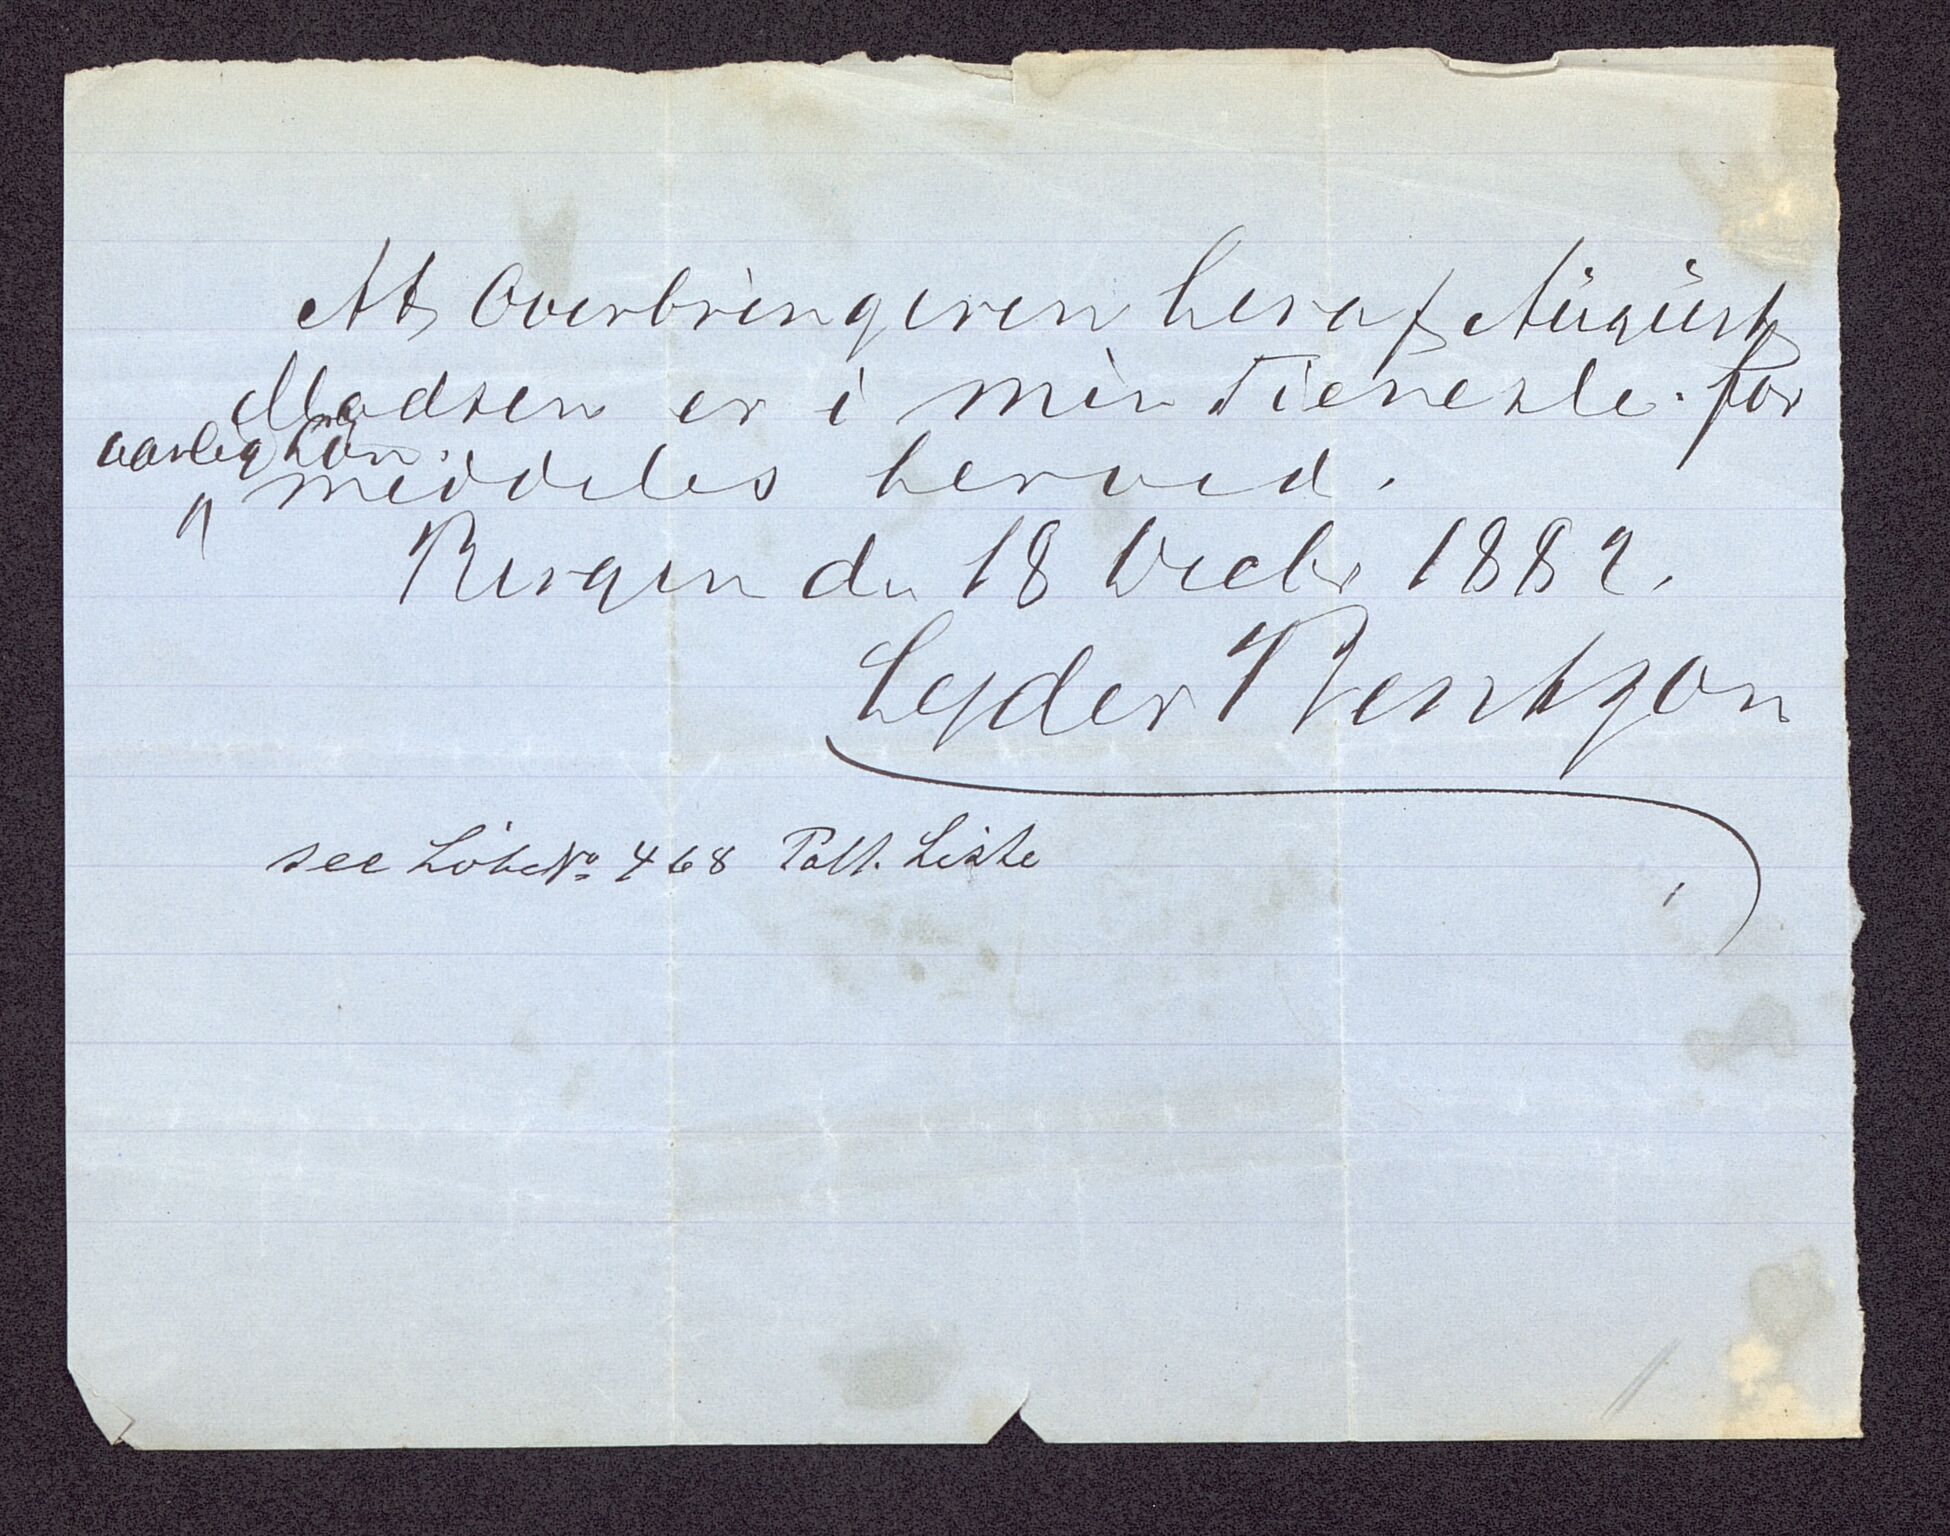 At Overbringeren heraf August
Madsen er i min Tieneste. for
aarlig Løn.
meddeles herved.
Bergen dn 18 Decbr 1882.
Lyder Bentzon
see Löbe No 468 Pass. Liste